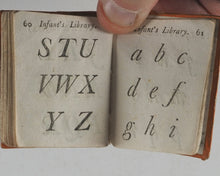 60 Infant's Library.
S T U
V W X
Y Z
Infant's Library. 61
a b c
d e f
g h i